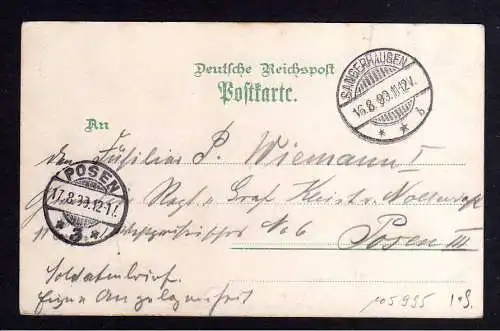 Deutsche Reichspost
Postkarte.
SANGERHAUSEN
16.8.99.11-12V.
* * b
An
den Füsilier P. Wiemann I
POSEN
17.8.99.12-1N.
* 3 *
Regt v Graf Kleist v. Nollendorf
No 6
Posen III
Soldatenbrief.
Eigene Angelegenheit
105995